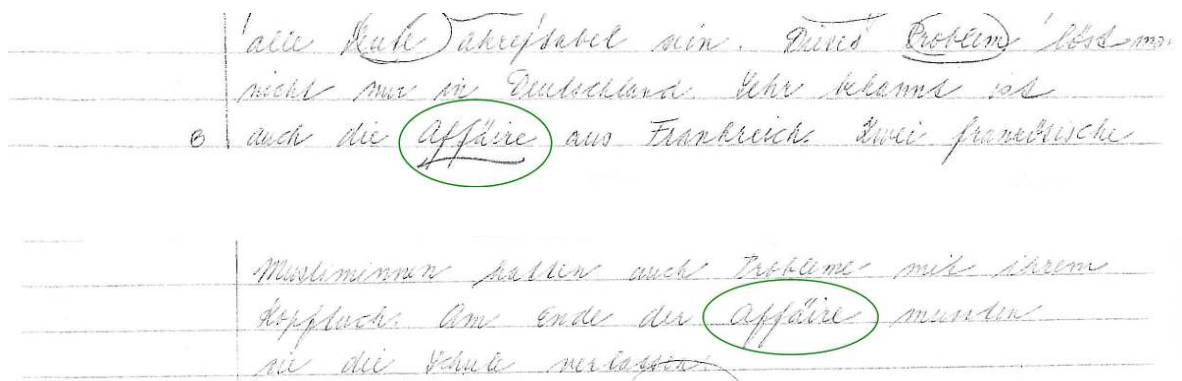 alle Leute akzeptabel sein. Dieses Problem löst ma.
nicht nur in Deutschland. Sehr bekannt ist
B auch die Affäire aus Frankreich. Zwei französische
Musliminnen hatten auch Probleme mit ihrem
Kopftuch. Am Ende der Affäire mussten
sie die Schule verlassen.